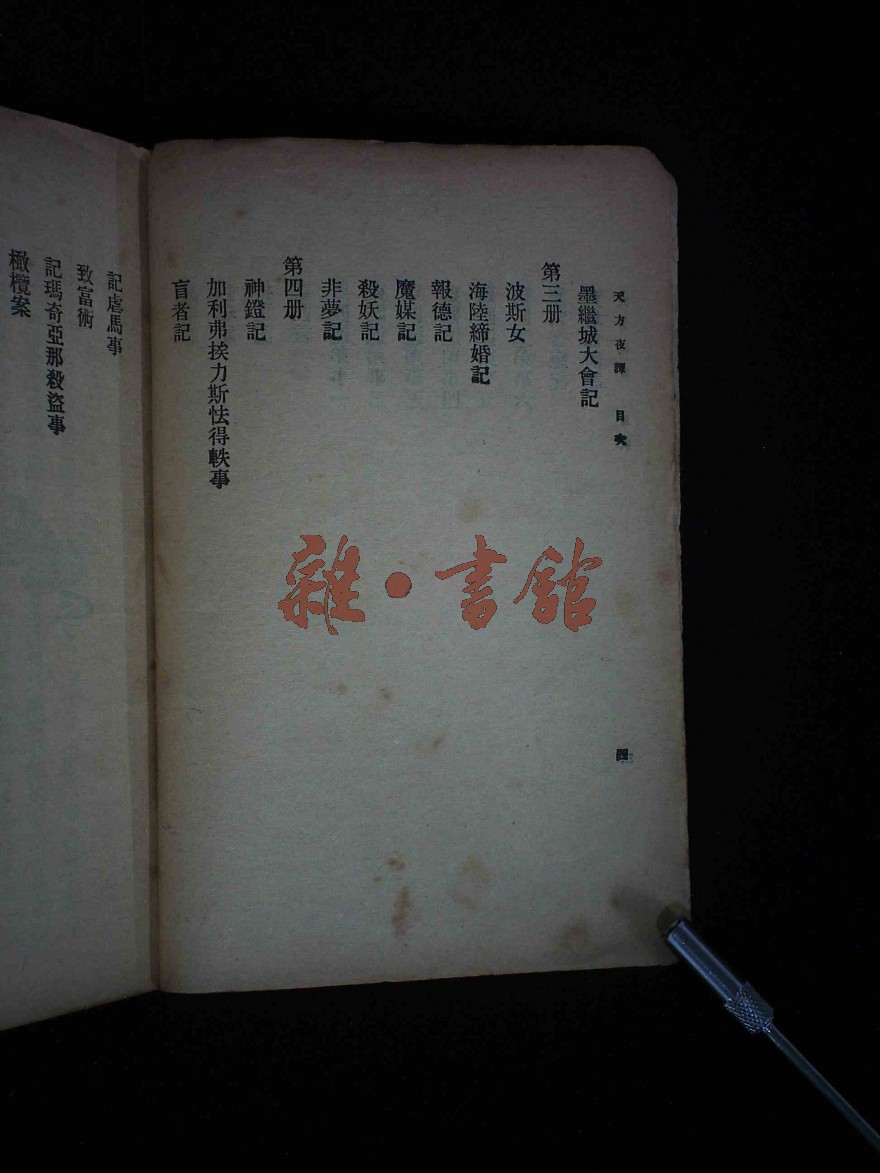 天方夜譚　目次
四
墨繼城大會記
第三册
波斯女
海陸締婚記
報德記
魔媒記
殺妖記
非夢記
第四册
神鐙記
加利弗挨力斯怯得軼事
盲者記
記虐馬事
致富術
記瑪奇亞那殺盜事
橄欖案
雜·書館